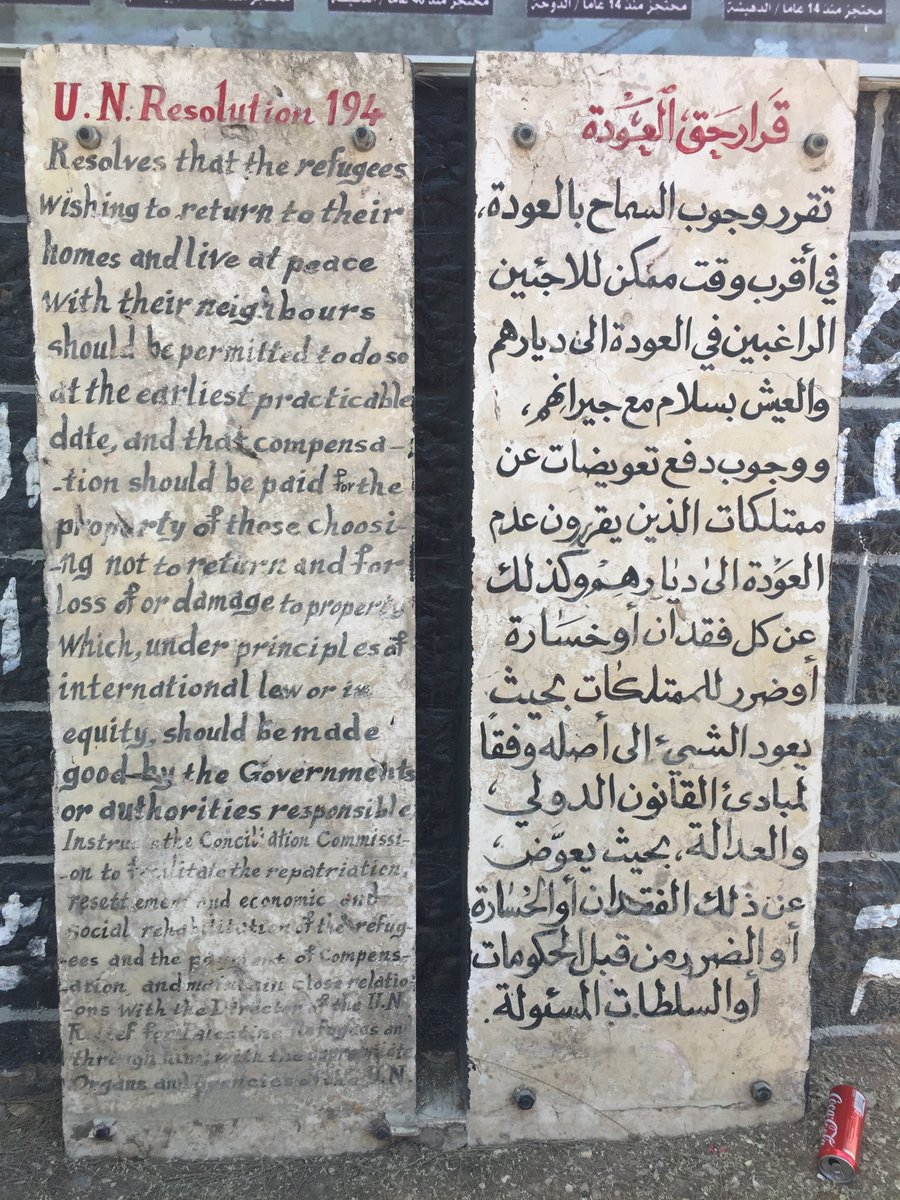 محتجز منذ 14 عاما / الدوحة
محتجز منذ 14 عاما / الدهيشة
U.N. Resolution 194
Resolves that the refugees
wishing to return to their
homes and live at peace
with their neighbours
should be permitted to do so
at the earliest practicable
date, and that compensa-
-tion should be paid for the
property of those choosi-
-ng not to return and for
loss of or damage to property
which, under principles of
international law or in
equity, should be made
good by the Governments
or authorities responsible,
Instructs the Conciliation Commissi-
-on to facilitate the repatriation,
resettlement and economic and
social rehabilitation of the refug-
-ees and the payment of Compens-
-ation and maintain close relatio-
-ons with the Director of the U.N.
Relief for Palestine Refugees and
through him, with the appropriate
Organs and agencies of the U.N.
قرار حق العودة
تقرر وجوب السماح بالعودة،
في أقرب وقت ممكن للاجئين
الراغبين في العودة الى ديارهم
والعيش بسلام مع جيرانهم،
ووجوب دفع تعويضات عن
ممتلكات الذين يقررون عدم
العودة الى ديارهم وكذلك
عن كل فقدان أو خسارة
أو ضرر للممتلكات بحيث
يعود الشيئ الى أصله وفقاً
لمبادئ القانون الدولي
والعدالة، بحيث يعوّض
عن ذلك الفقدان أو الخسارة
أو الضرر من قبل الحكومات
أو السلطات المسئولة.
Coca-Cola